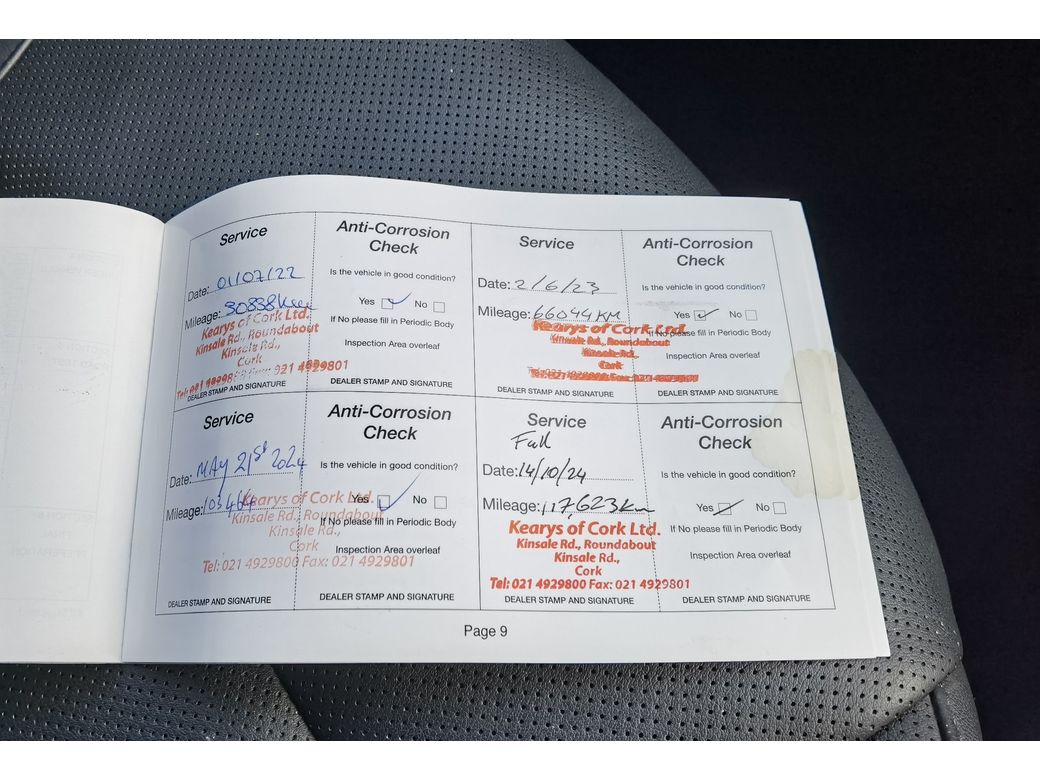 Service
Date: 01/07/22
Mileage: 30838km
Kearys of Cork Ltd.
Kinsale Rd., Roundabout
Kinsale Rd.,
Cork
Tel: 021 4929801
DEALER STAMP AND SIGNATURE
Anti-Corrosion
Check
Is the vehicle in good condition?
Yes No
If No please fill in Periodic Body
Inspection Area overleaf
DEALER STAMP AND SIGNATURE
Service
Date: 2/6/23
Mileage: 66044 KM
Kearys of Cork Ltd.
Kinsale Rd., Roundabout
Kinsale Rd.,
Cork
DEALER STAMP AND SIGNATURE
Anti-Corrosion
Check
Is the vehicle in good condition?
Yes No
If No please fill in Periodic Body
Inspection Area overleaf
DEALER STAMP AND SIGNATURE
Service
Date: MAY 21st 2024
Mileage: 103464
Kearys of Cork Ltd.
Kinsale Rd., Roundabout
Kinsale Rd.,
Cork
Tel: 021 4929800 Fax: 021 4929801
DEALER STAMP AND SIGNATURE
Anti-Corrosion
Check
Is the vehicle in good condition?
Yes No
If No please fill in Periodic Body
Inspection Area overleaf
DEALER STAMP AND SIGNATURE
Service
Full
Date: 14/10/24
Mileage: 117,623km
Kearys of Cork Ltd.
Kinsale Rd., Roundabout
Kinsale Rd.,
Cork
Tel: 021 4929800 Fax: 021 4929801
DEALER STAMP AND SIGNATURE
Anti-Corrosion
Check
Is the vehicle in good condition?
Yes No
If No please fill in Periodic Body
Inspection Area overleaf
DEALER STAMP AND SIGNATURE
Page 9